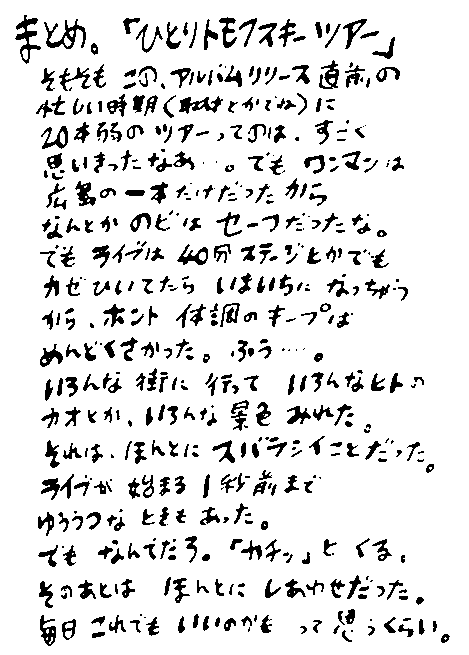 まとめ。「ひとりトモフスキーツアー」
そもそも この、アルバムリリース直前の
忙しい時期(取材とかでね)に
20本弱の ツアーってのは、すごく
思いきったなあ…。でも ワンマンは
広島の一本だけだったから
なんとか のどは セーフだったな。
でも ライブは 40分ステージとかでも
カゼひいてたら いまいちに なっちゃう
から、ホント 体調のキープは
めんどくさかった。ふう…。
いろんな 街に 行って いろんなヒトの
カオとか、いろんな 景色 みれた。
それは、ほんとに スバラシイことだった。
ライブが 始まる 1秒前まで
ゆううつな ときも あった。
でも なんでだろ。「カチッ」と くる、
そのあとは ほんとに しあわせだった。
毎日 これでも いいのかも って 思うくらい。